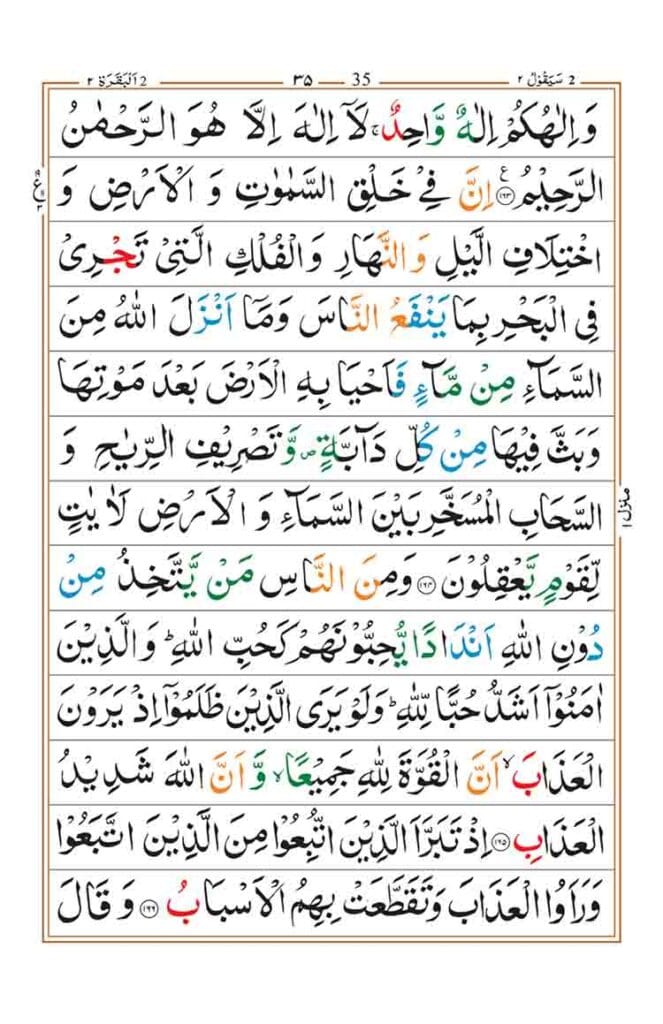 2 سَيَقُوْلُ ٢ 35 ٣٥ 2 اَلْبَقَرَة ٢
وَاِلٰهُكُمْ اِلٰهٌ وَّاحِدٌ ۚ لَاۤ اِلٰهَ اِلَّا هُوَ الرَّحْمٰنُ
الرَّحِيْمُ ۝١٦٣ اِنَّ فِىْ خَلْقِ السَّمٰوٰتِ وَ الْاَرْضِ وَ
اخْتِلَافِ الَّيْلِ وَالنَّهَارِ وَالْفُلْكِ الَّتِىْ تَجْرِىْ
فِى الْبَحْرِ بِمَا يَنْفَعُ النَّاسَ وَمَاۤ اَنْزَلَ اللّٰهُ مِنَ
السَّمَآءِ مِنْ مَّآءٍ فَاَحْيَا بِهِ الْاَرْضَ بَعْدَ مَوْتِهَا
وَبَثَّ فِيْهَا مِنْ كُلِّ دَآبَّةٍ ۪ وَّتَصْرِيْفِ الرِّيٰحِ وَ
السَّحَابِ الْمُسَخَّرِ بَيْنَ السَّمَآءِ وَ الْاَرْضِ لَاٰيٰتٍ
لِّقَوْمٍ يَّعْقِلُوْنَ ۝١٦٤ وَمِنَ النَّاسِ مَنْ يَّتَّخِذُ مِنْ
دُوْنِ اللّٰهِ اَنْدَادًا يُّحِبُّوْنَهُمْ كَحُبِّ اللّٰهِ ؕ وَالَّذِيْنَ
اٰمَنُوْۤا اَشَدُّ حُبًّا لِّلّٰهِ ؕ وَلَوْ يَرَى الَّذِيْنَ ظَلَمُوْۤا اِذْ يَرَوْنَ
الْعَذَابَ ۙ اَنَّ الْقُوَّةَ لِلّٰهِ جَمِيْعًا ۙ وَّاَنَّ اللّٰهَ شَدِيْدُ
الْعَذَابِ ۝١٦٥ اِذْ تَبَرَّاَ الَّذِيْنَ اتُّبِعُوْا مِنَ الَّذِيْنَ اتَّبَعُوْا
وَرَاَوُا الْعَذَابَ وَتَقَطَّعَتْ بِهِمُ الْاَسْبَابُ ۝١٦٦ وَ قَالَ
منزل ١